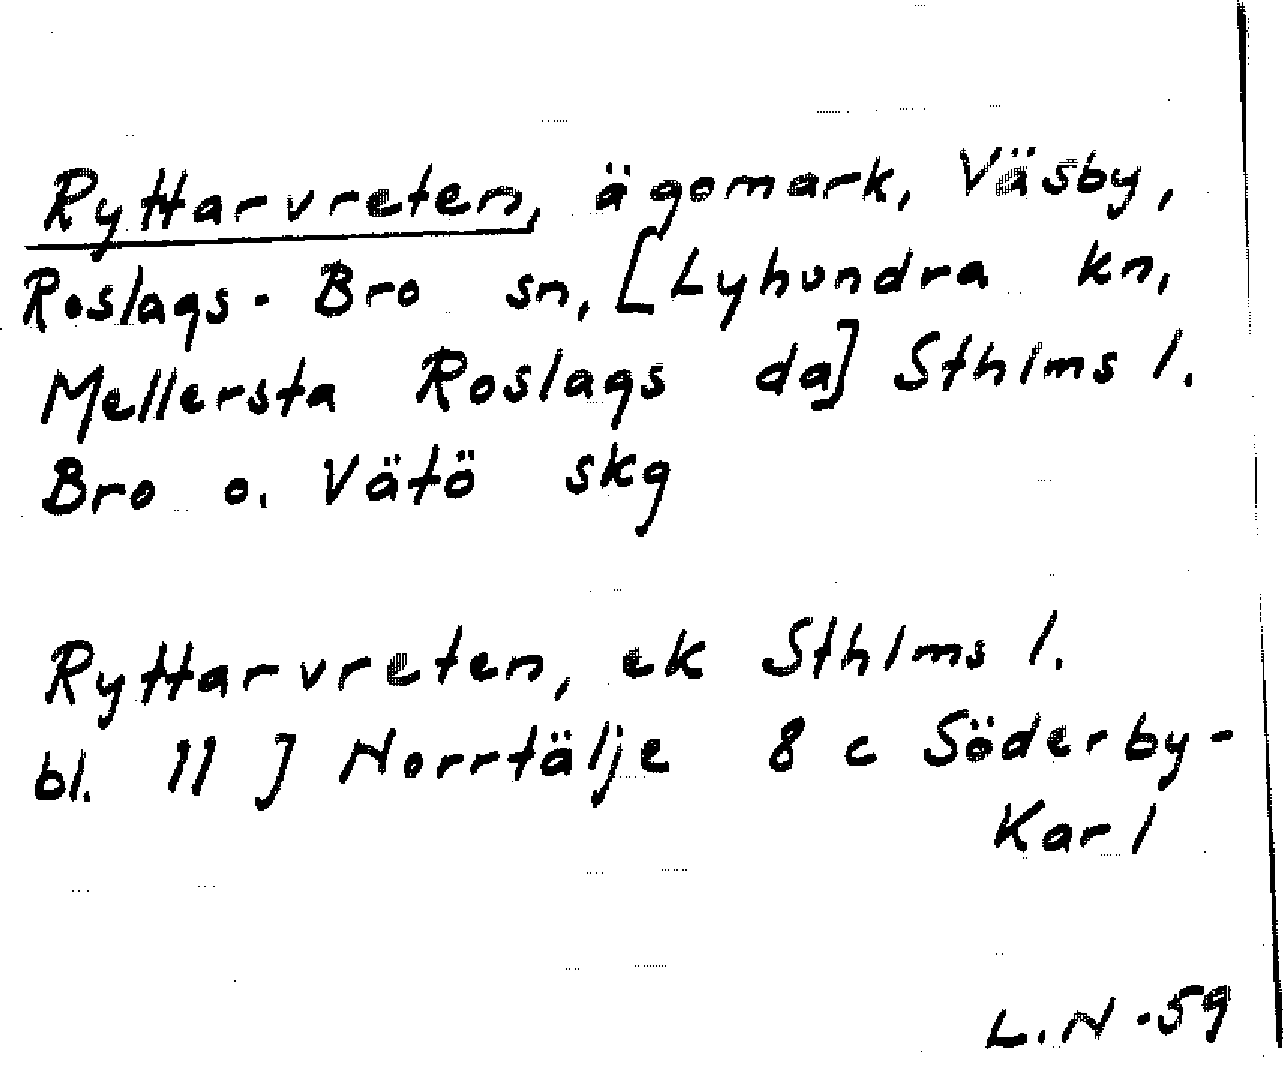 Ryttarvreten, ägomark, Väsby,
Roslags-Bro sn, [Lyhundra kn,
Mellersta Roslags da] Sthlms l.
Bro o. Vätö skg
Ryttarvreten, ek Sthlms l.
bl. 11 J Norrtälje 8 c Söderby-
Karl
L.N -59